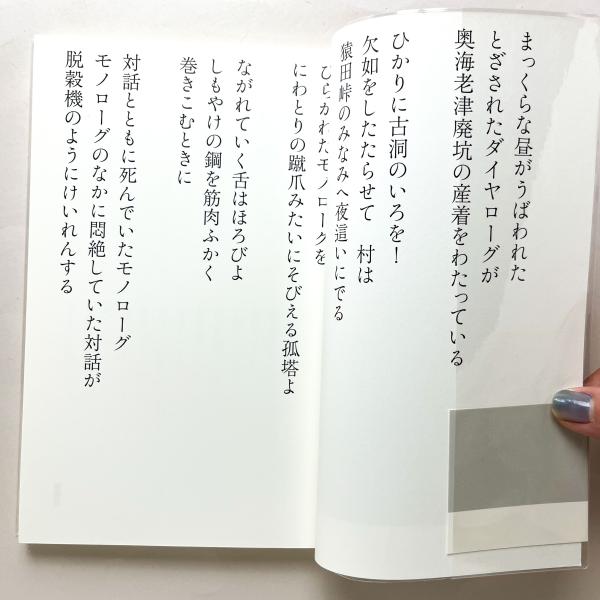 まっくらな昼がうばわれた
とざされたダイヤローグが
奥海老津廃坑の産着をわたっている
ひかりに古洞のいろを!
欠如をしたたらせて 村は
猿田峠のみなみへ夜這いにでる
ひらかれたモノローグを
にわとりの蹴爪みたいにそびえる孤塔よ
ながれていく舌はほろびよ
しもやけの鋼を筋肉ふかく
巻きこむときに
対話とともに死んでいたモノローグ
モノローグのなかに悶絶していた対話が
脱穀機のようにけいれんする